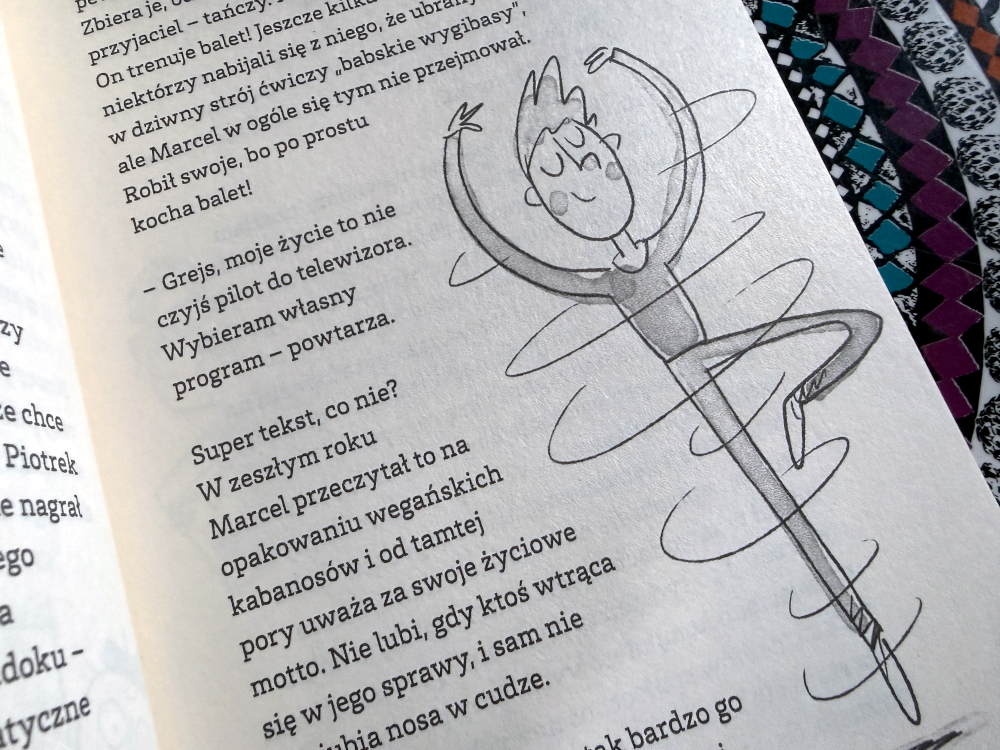 zy
e
że chce
Piotrek
e nagrał
ego
a
doku –
tyczne
Zbiera je,
przyjaciel – tańczy.
On trenuje balet! Jeszcze kilka
niektórzy nabijali się z niego, że ubrany
w dziwny strój ćwiczy „babskie wygibasy”,
ale Marcel w ogóle się tym nie przejmował.
Robił swoje, bo po prostu
kocha balet!
– Grejs, moje życie to nie
czyjś pilot do telewizora.
Wybieram własny
program – powtarza.
Super tekst, co nie?
W zeszłym roku
Marcel przeczytał to na
opakowaniu wegańskich
kabanosów i od tamtej
pory uważa za swoje życiowe
motto. Nie lubi, gdy ktoś wtrąca
się w jego sprawy, i sam nie
nosa w cudze.
tak bardzo go